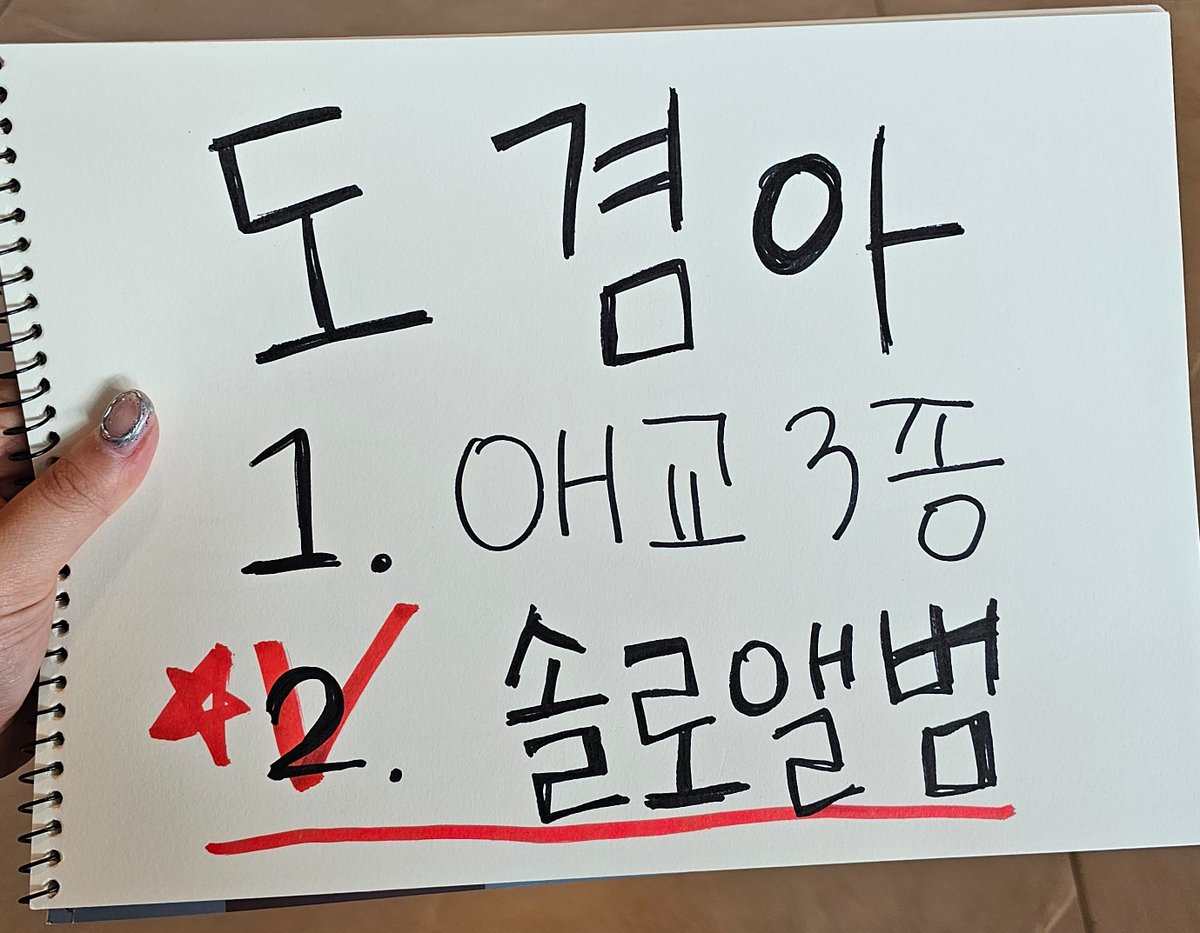 도겸아
1. 애교 3종
2. 솔로앨범